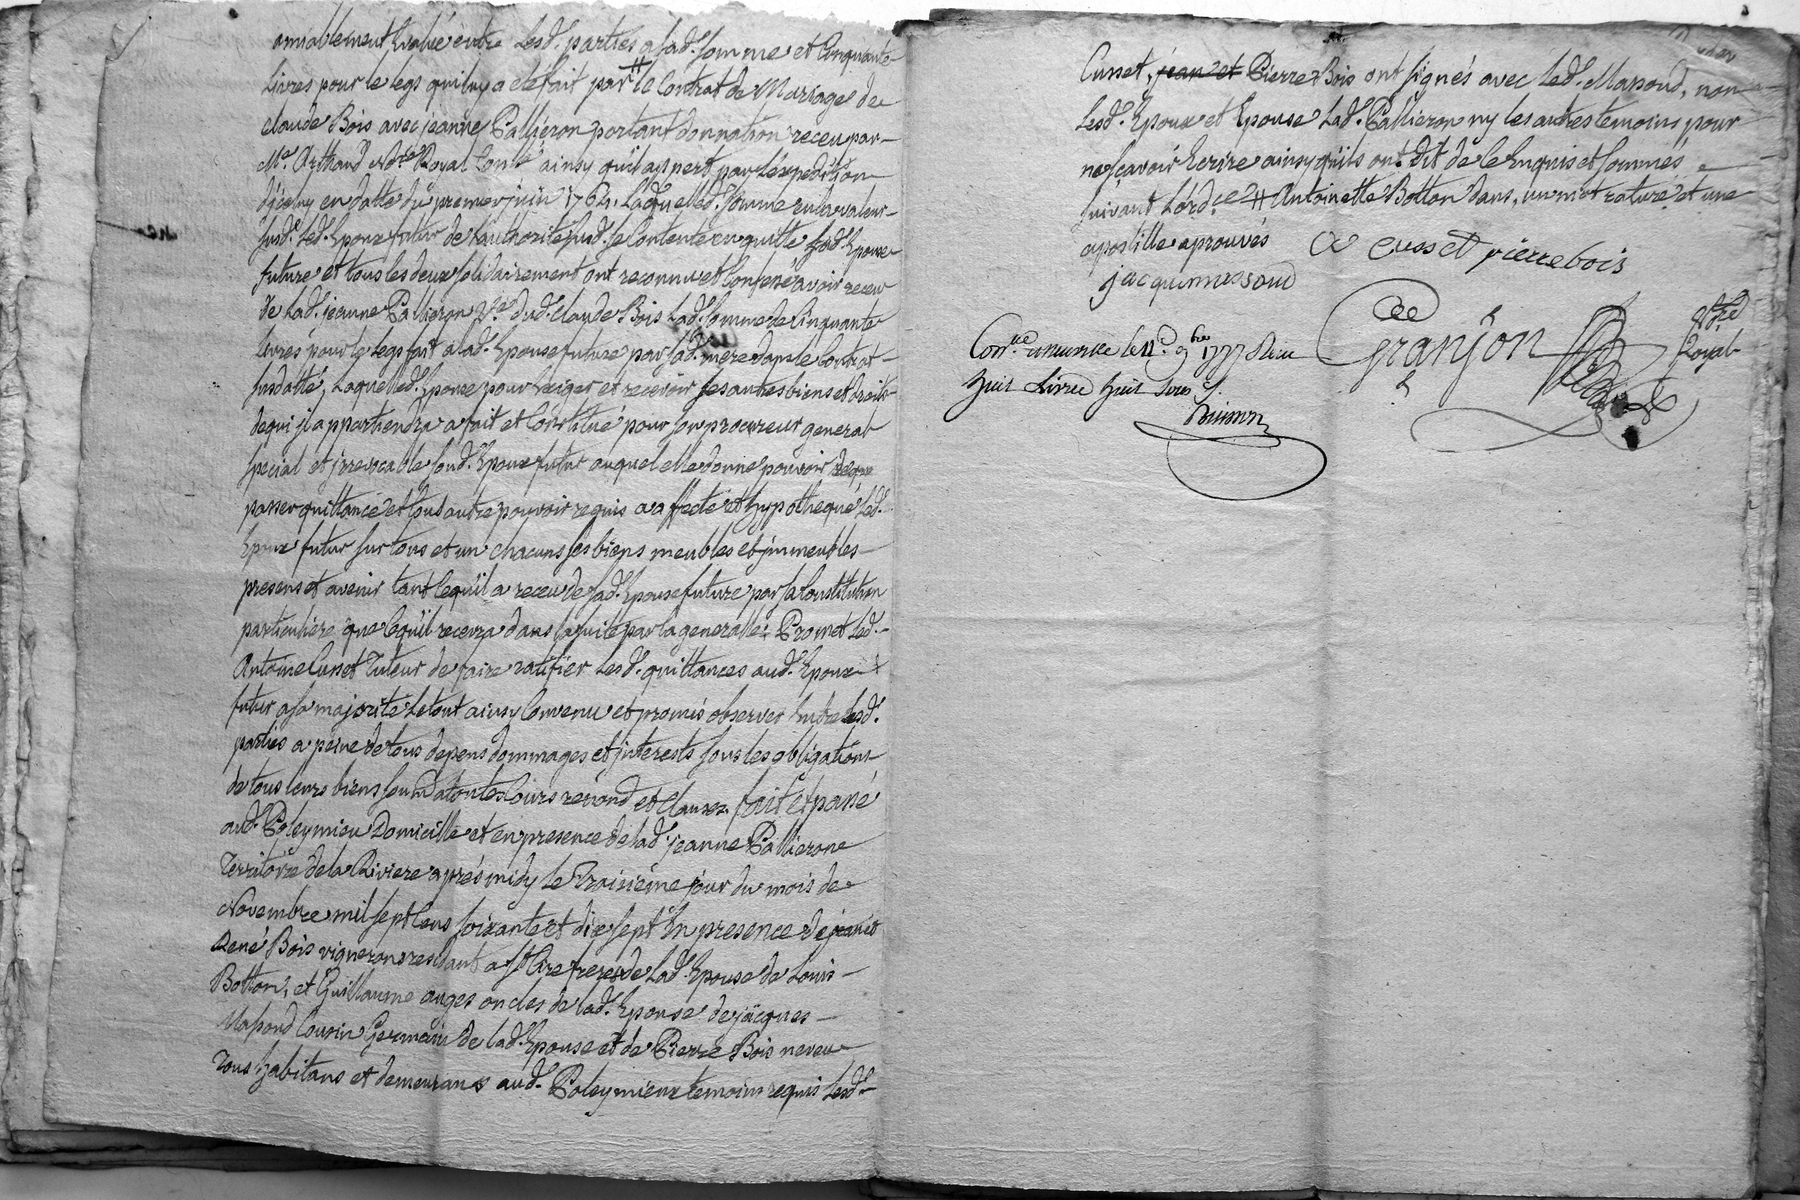 amiablement Evalué entre Lesd. parties a lad. somme et Cinquante
Livres pour le legs qui luy a eté fait par # le Contrat de Mariage de
Claude Bois avec jeanne Pallieron portant donnation receu par
Me. Arthaud Nore. Royal ainsy qu'il appert par l'expedition
d'iceluy en datte du premier juin 1764, Laquelle d. somme en la valeur
susd. Led. Epoux futur de l'authorité susd. se Contente en quitte Lad. Epouse
future et tous les deux solidairement ont reconnu et Confessé avoir receu
de Lad. jeanne Pallieron Ve. dud. Claude Bois Lad. somme de Cinquante
Livres pour le legs fait a lad. Epouse future par sad. mere dans le Contrat
susdatté, Laquelle d. Epouse pour Exiger et recevoir ses autres biens et droits
de qui j'l appartiendra a fait et Constitué pour son procureur general
special et jrrevocable sond. Epoux futur auquel elle donne pouvoir
passer quittance et tout autre pouvoir requis a affecté et hypothequé Led.
Epoux futur sur tous et un chacuns ses biens meubles et jmmeubles
presens et avenir tant lequ'il a receu de sad. Epouse future par sa Constitution
particuliere que lequ'il recevra dans la suite par la generalle; Promet Led.
Antoine Cusset Tuteur de faire ratifier Lesd. quittances aud. Epoux
futur a sa majorité Le tout ainsy Convenu et promis observer Entre Lesd.
parties a peine de tous depens dommages et jnterests sous les obligations
de tous leurs biens soumis a toutes Cours renond et Clauses. fait et passé
aud. Poleymieu Domicille et en presence de lad. jeanne Pallieron
Territoire de la Riviere aprés midy Le Troisiéme jour du mois de
Novembre mil sept Cens soixante et dix sept En presence de jean et
René Bois vignerons residant a St Cire freres de Lad. Epouse de Louis
Botton, et Guillaume auges oncles de lad. Epouse de jäcques
Massond Cousin Germain de Lad. Epouse et de Pierre Bois neveu
Tous habitans et demeurans aud. Poleymieux temoins requis Lesd.
Cusset, jean et Pierre Bois ont signés avec led. Massond, non
Lesd. Epoux et Epouse Lad. Pallieron ny les autres temoins pour
ne sçavoir Ecrire ainsy qu'ils ont dit de ce Enquis et sommés
suivant L'ord.ce # Antoinette Botton dans, un mot raturé et une
apostille aprouvés A Cusset pierre bois
jacquimassond
Granjon Nore Royal
Contle a neuville le 11e. 9bre 1777 Reçu
huit Livres huit sous
Buisson